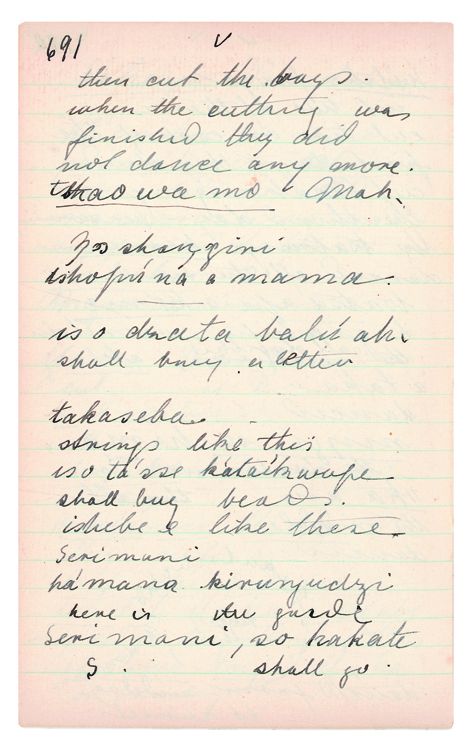 691 v
then cut the boys.
when the cutting was
finished they did
not dance any more.
wa mo Mah.
ishopi na a mama.
iso balii ah.
shall buy a letter
takaseba.
strings like this
iso tásse kataíkwape
shall buy beads.
ishebe e like these.
Serimani
hámana kirunyudzi
here is the guard
Serimani, so kakate
S. shall go.